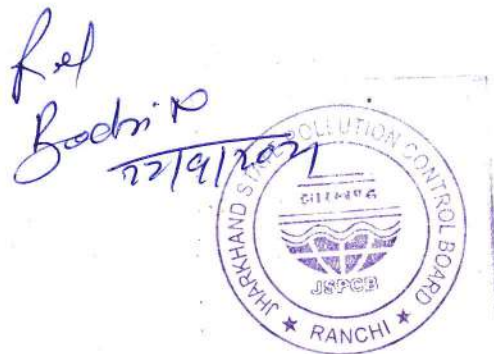 Rel
Badri N
22/9/2021
JHARKHAND STATE POLLUTION CONTROL BOARD
झारखण्ड
JSPCB
★ RANCHI ★